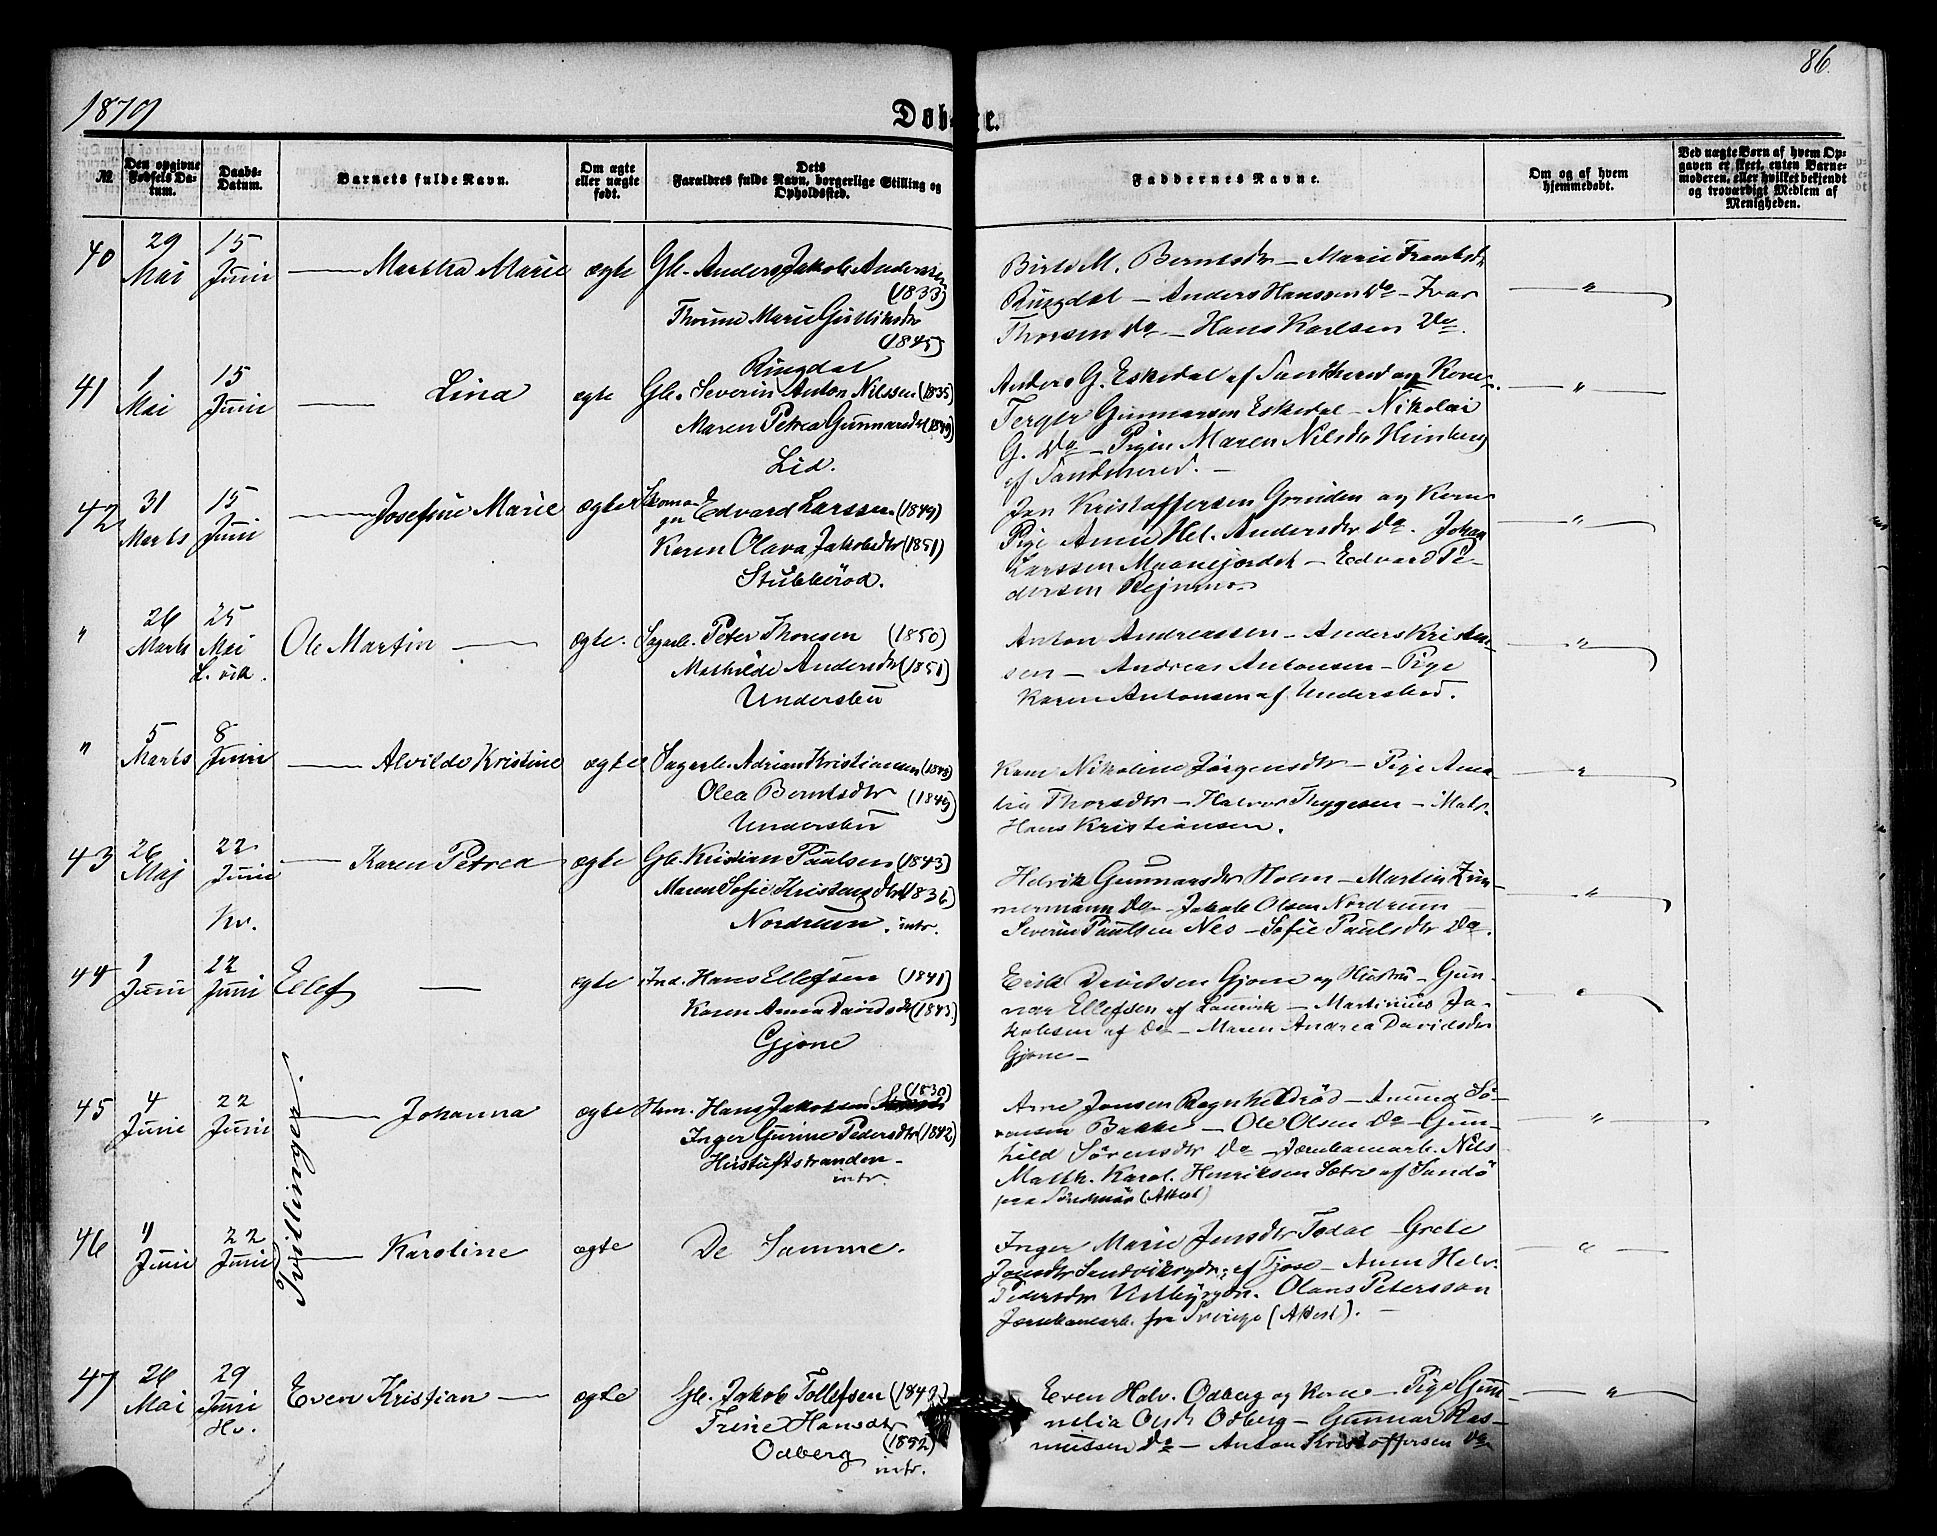 1879
86.
Døbte.
№
Den opgivne Fødsels Datum.
Daabs-Datum.
Barnets fulde Navn.
Om ægte eller uægte født.
Dets Forældres fulde Navn, borgerlige Stilling og Opholdssted.
Faddernes Navne.
Om og af hvem hjemmedøbt.
Ved uægte Børn af hvem Opgaven er skeet, enten Barnemoderen, eller hvilket bekjendt og troværdigt Medlem af Menigheden.
40 29 Mai 15 Juni — Martha Marie ægte Gb. Anders Jakob Andersen
(1833)
Thrine Marie Gulliksdr
(1845)
Ringdal
Birte M. Berntsdr — Marie Frantsdr
Ringdal — Anders Hanssen Do — Ivar
Thorsen Do — Hans Karlsen Do.
41 1 Mai 15 Juni — Lina ægte Gb. Severin Anton Nilssen (1835)
Maren Petrea Gunnarsdr (1849)
Lid.
Anders G. Eskedal af Sandherred og Kone —
Terger Gunnarsen Eskedal — Nikolai
G. Do — Pigen Maren Nilsdr Himberg
af Sandeherred. —
42 31 Marts 15 Juni — Josefine Marie ægte Skomager Edvard Larssen (1849)
Karen Olava Jakobsdr (1851)
Stubberød.
Jan Kristoffersen Grinden og Kone
Pige Anne Hel. Andersdr Do. Johan
Larssen Maanejordet — Edvard Pe-
dersen
" 26 Marts 25 Mai L.vik. Ole Martin — ægte. Sagarb. Peter Thoresen (1850)
Mathilde Andersdr (1851)
Undersbu
Anton Andreassen — Anders Kristen-
sen — Andreas Antonsen — Pige
Karen Antonsen af Undersbod.
" 5 Marts 8 Juni — Alvilde Kristine ægte Sagarb. Adrian Kristiansen (1848)
Olea Berntsdtr (1849)
Undersbu
Kone Nikoline Jørgensdtr — Pige Ama-
lia Thorsdtr — Halvor Thygesen — Matr.
Hans Kristiansen.
43 26 Maj 22 Juni Hv. — Karen Petrea ægte Gb. Kristian Paulsen (1843)
Maren Sofie Kristensdtr (1836)
Nordrum. intr.
Helvik Gunnarsdr Holm — Martin Zim-
mermann Do — Jakob Olsen Nordrum —
Severin Paulsen Nes — Sofie Paulsdtr Do.
44 1 Juni 22 Juni Ellef — ægte Ind. Hans Ellefsen (1841)
Karen Anna Davidsdtr (1843)
Gjone
Erik Davidsen Gjone og Hustru — Gun-
nar Ellefsen af Laurvik — Martinius Ja-
kobsen af Do — Maren Andrea Davidsdtr
Gjone —
Tvillinger.
45 4 Juni 22 Juni — Johanna ægte Hans Jakobsen (1830)
Inger Gurine Pedersdtr (1842)
intr.
Arne Jonsen Ragnhildrød — Amund Sø-
rensen Bakke — Ole Olsen Do — Gun-
hild Sørensdtr Do — Jernbanearb. Nils
Matth. Karol. Henriksen Sætre af Sandø
paa Søndmør (Attest)
46 4 Juni 22 Juni — Karoline ægte De Samme.
Inger Marie Jensdtr Todal — Grete
Jonsdtr af Tjose — Anne Helv.
Pedersdtr Olaus Petersson
Jernbanearb. fra Sverige (Attest). —
47 26 Mai 29 Juni Hv. Even Kristian — ægte Gb. Jakob Tollefsen (1842)
Trine Hansdtr
(1852)
Odberg intr.
Even Halv. Odberg og Kone — Pige Gun-
nelia Odberg — Gunnar Ras-
mussen Do — Anton Kristoffersen Do